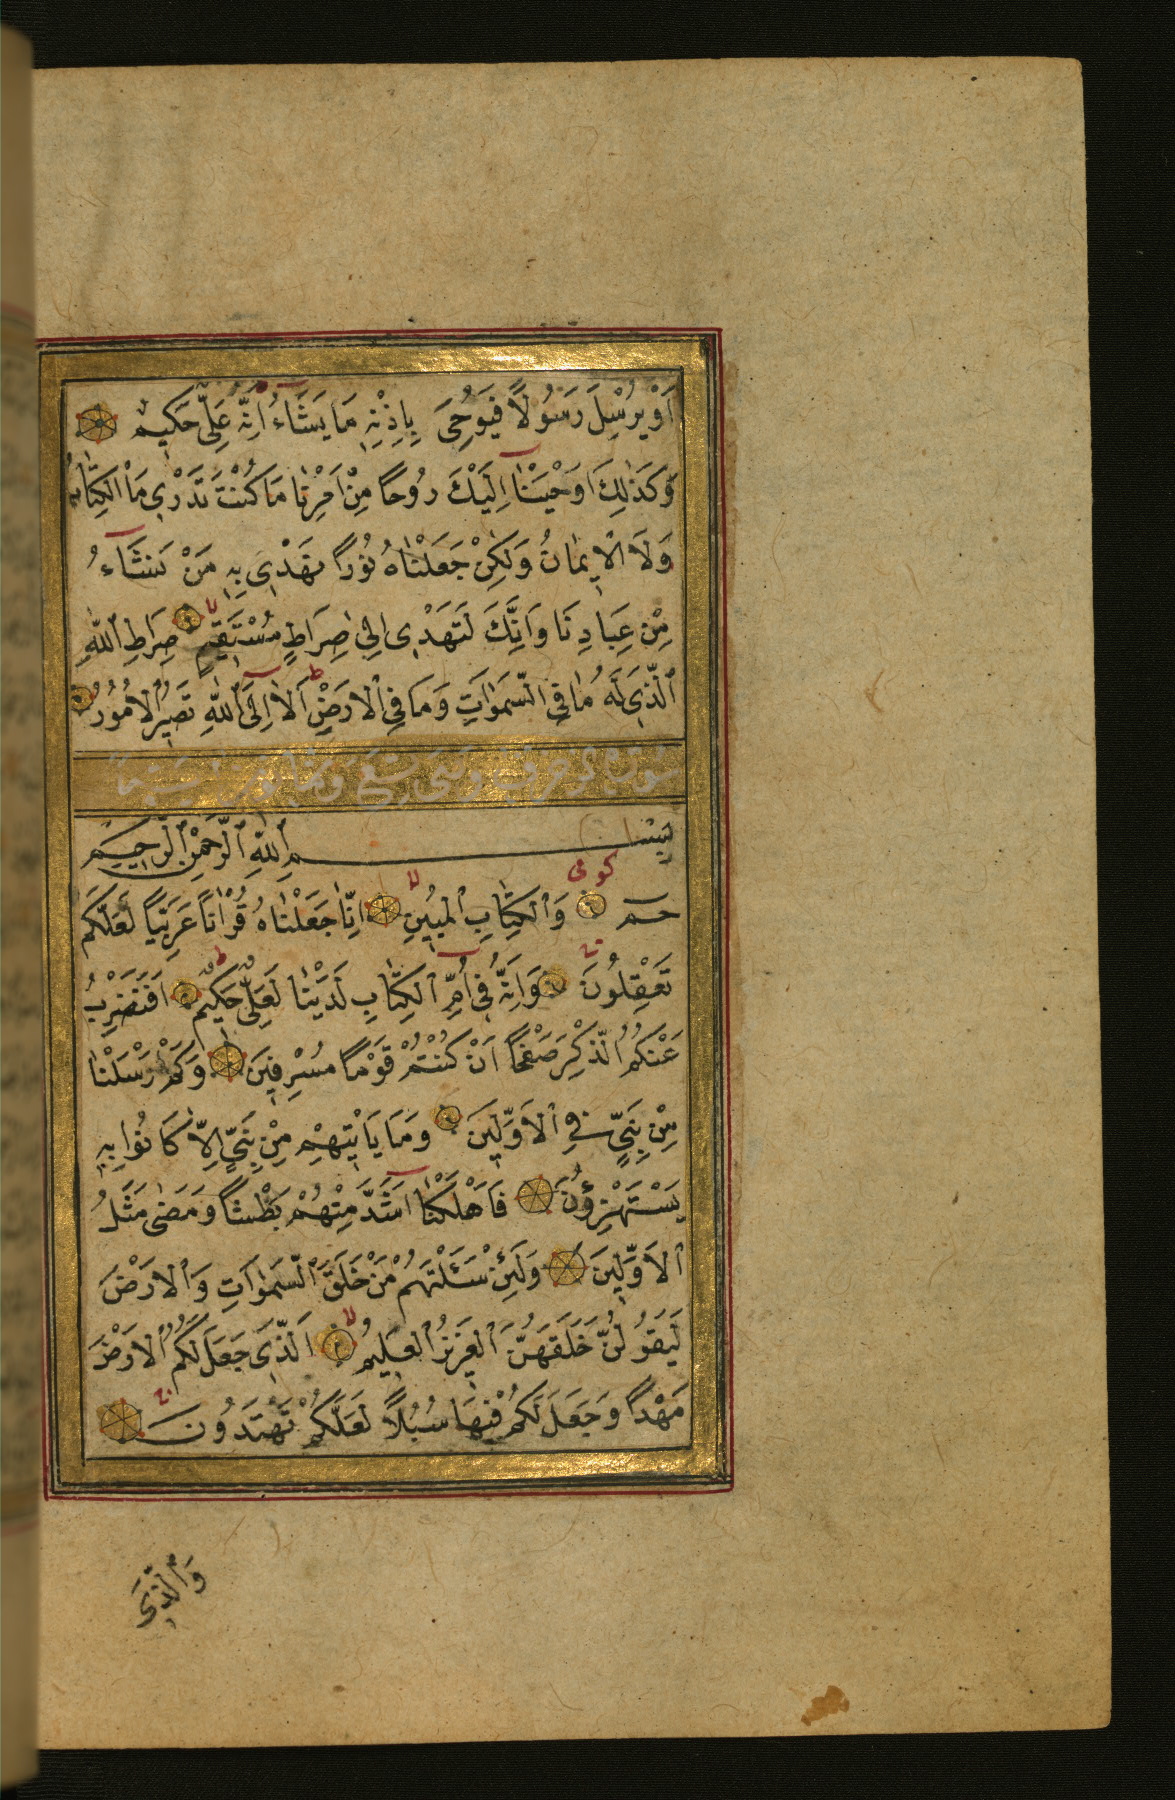 اَوْ يُرْسِلَ رَسُولًا فَيُوحِىَ بِاِذْنِهِ مَا يَشَاءُ اِنَّهُ عَلِىٌّ حَكِيمٌ
وَكَذٰلِكَ اَوْحَيْنَا اِلَيْكَ رُوحًا مِنْ اَمْرِنَا مَا كُنْتَ تَدْرِى مَا الْكِتَابُ
وَلَا الْاِيمَانُ وَلٰكِنْ جَعَلْنَاهُ نُورًا نَهْدِى بِهِ مَنْ نَشَاءُ
مِنْ عِبَادِنَا وَاِنَّكَ لَتَهْدِى اِلٰى صِرَاطٍ مُسْتَقِيمٍ صِرَاطِ اللّٰهِ
الَّذِى لَهُ مَا فِى السَّمٰوَاتِ وَمَا فِى الْاَرْضِ اَلَا اِلَى اللّٰهِ تَصِيرُ الْاُمُورُ
سورة الزخرف وهى تسع وثمانون
بِسْمِ اللّٰهِ الرَّحْمٰنِ الرَّحِيمِ
كوفى
حٰم وَالْكِتَابِ الْمُبِينِ لا اِنَّا جَعَلْنَاهُ قُرْاٰنًا عَرَبِيًّا لَعَلَّكُمْ
تَعْقِلُونَ وَاِنَّهُ فِى اُمِّ الْكِتَابِ لَدَيْنَا لَعَلِىٌّ حَكِيمٌ ط اَفَنَضْرِبُ
عَنْكُمُ الذِّكْرَ صَفْحًا اَنْ كُنْتُمْ قَوْمًا مُسْرِفِينَ وَكَمْ اَرْسَلْنَا
مِنْ نَبِىٍّ فِى الْاَوَّلِينَ وَمَا يَاْتِيهِمْ مِنْ نَبِىٍّ اِلَّا كَانُوا بِهِ
يَسْتَهْزِؤُنَ فَاَهْلَكْنَا اَشَدَّ مِنْهُمْ بَطْشًا وَمَضٰى مَثَلُ
الْاَوَّلِينَ وَلَئِنْ سَئَلْتَهُمْ مَنْ خَلَقَ السَّمٰوَاتِ وَالْاَرْضَ
لَيَقُولُنَّ خَلَقَهُنَّ الْعَزِيزُ الْعَلِيمُ لا اَلَّذِى جَعَلَ لَكُمُ الْاَرْضَ
مَهْدًا وَجَعَلَ لَكُمْ فِيهَا سُبُلًا لَعَلَّكُمْ تَهْتَدُونَ
وَالَّذِى